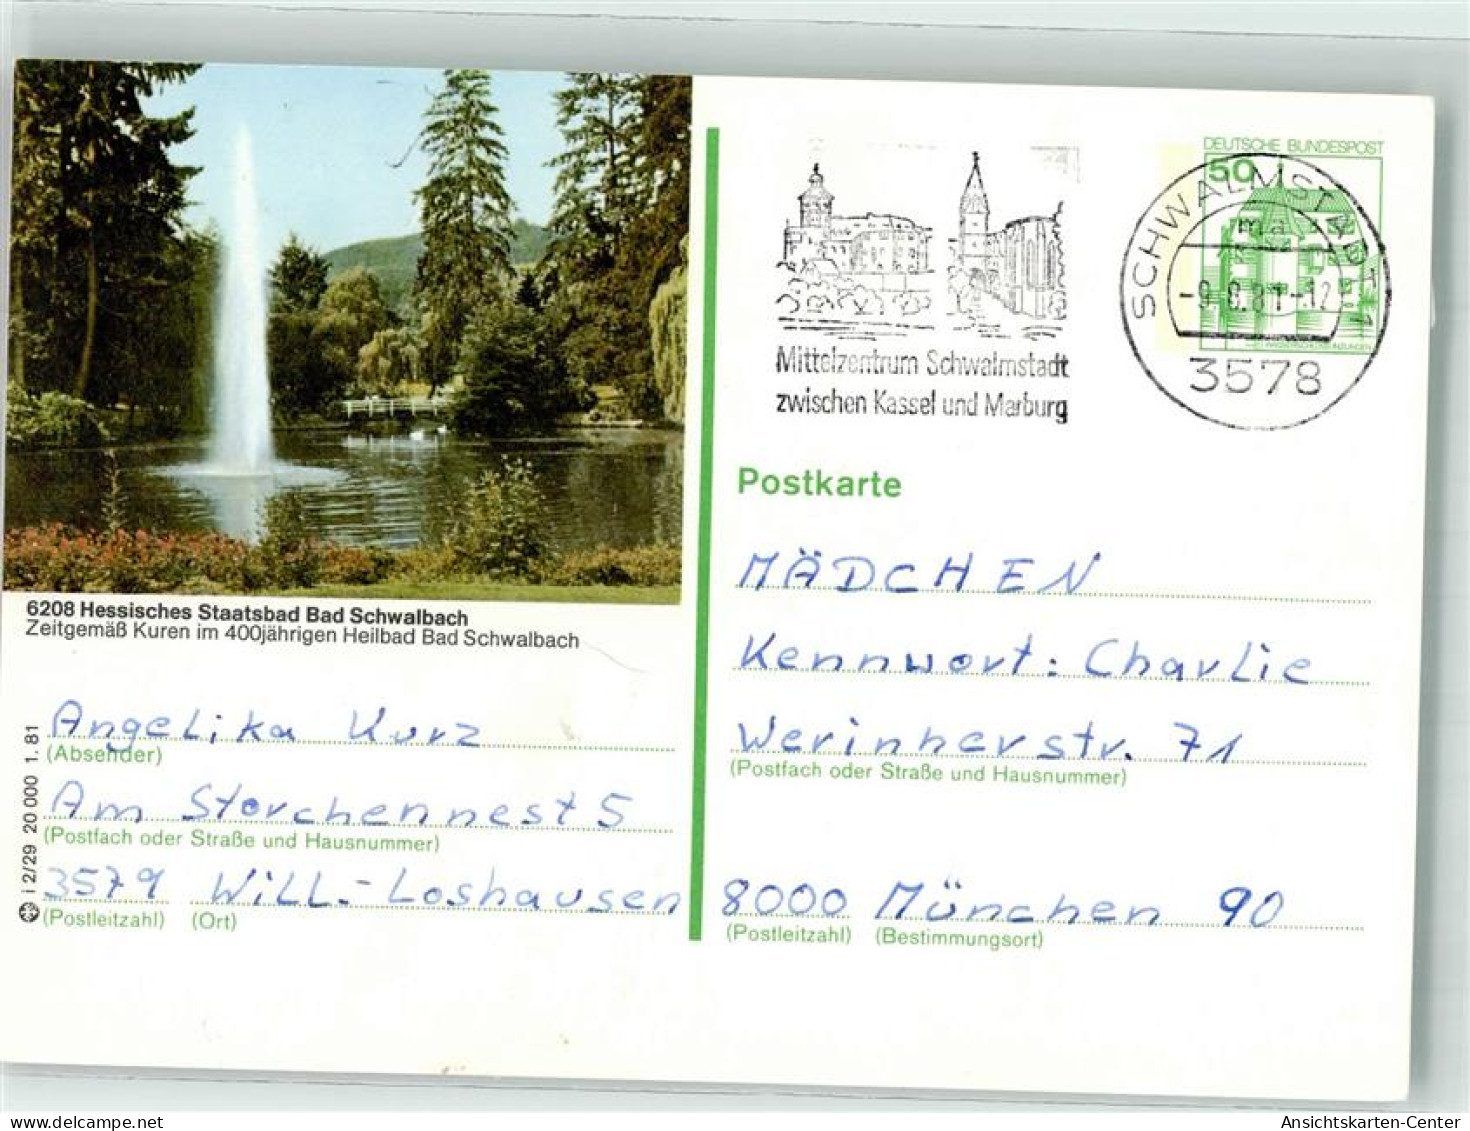 DEUTSCHE BUNDESPOST
50
SCHWALMSTADT 1
ma
3578
Mittelzentrum Schwalmstadt
zwischen Kassel und Marburg
6208 Hessisches Staatsbad Bad Schwalbach
Zeitgemäß Kuren im 400jährigen Heilbad Bad Schwalbach
Angelika Kurz
(Absender)
Am Storchennest 5
(Postfach oder Straße und Hausnummer)
3579 Will.-Loshausen
(Postleitzahl) (Ort)
i 2/29 20 000 1. 81
Postkarte
MÄDCHEN
Kennwort: Charlie
Werinherstr. 71
(Postfach oder Straße und Hausnummer)
8000 München 90
(Postleitzahl) (Bestimmungsort)
Ansichtskarten-Center